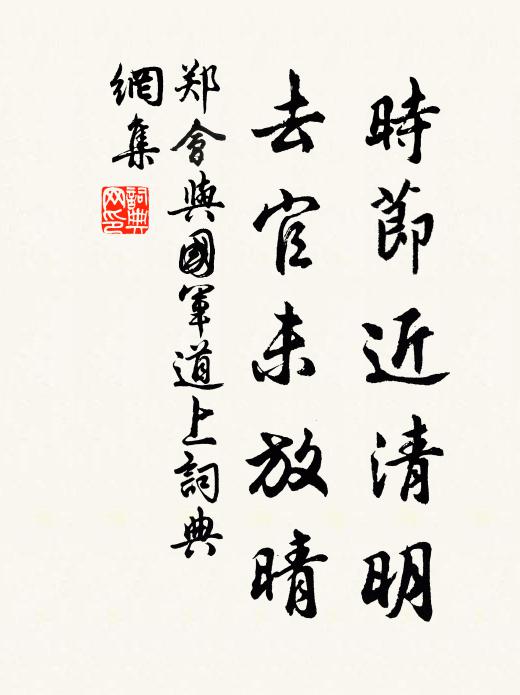 時節近清明
去官未放晴
郑會興國軍道上詞典
網集
詞典
网印